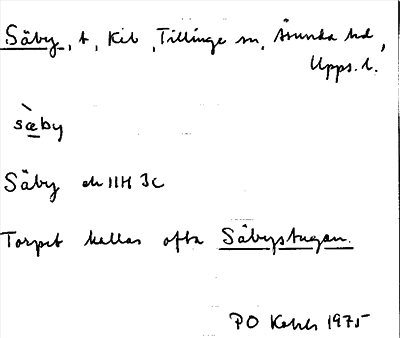 Säby, t, Kib, Tillinge sn, Åsunda hd,
Upps. l.
sæ̀by
Säby ek 11H 3c
Torpet kallas ofta Säbystugan.
PO 1975